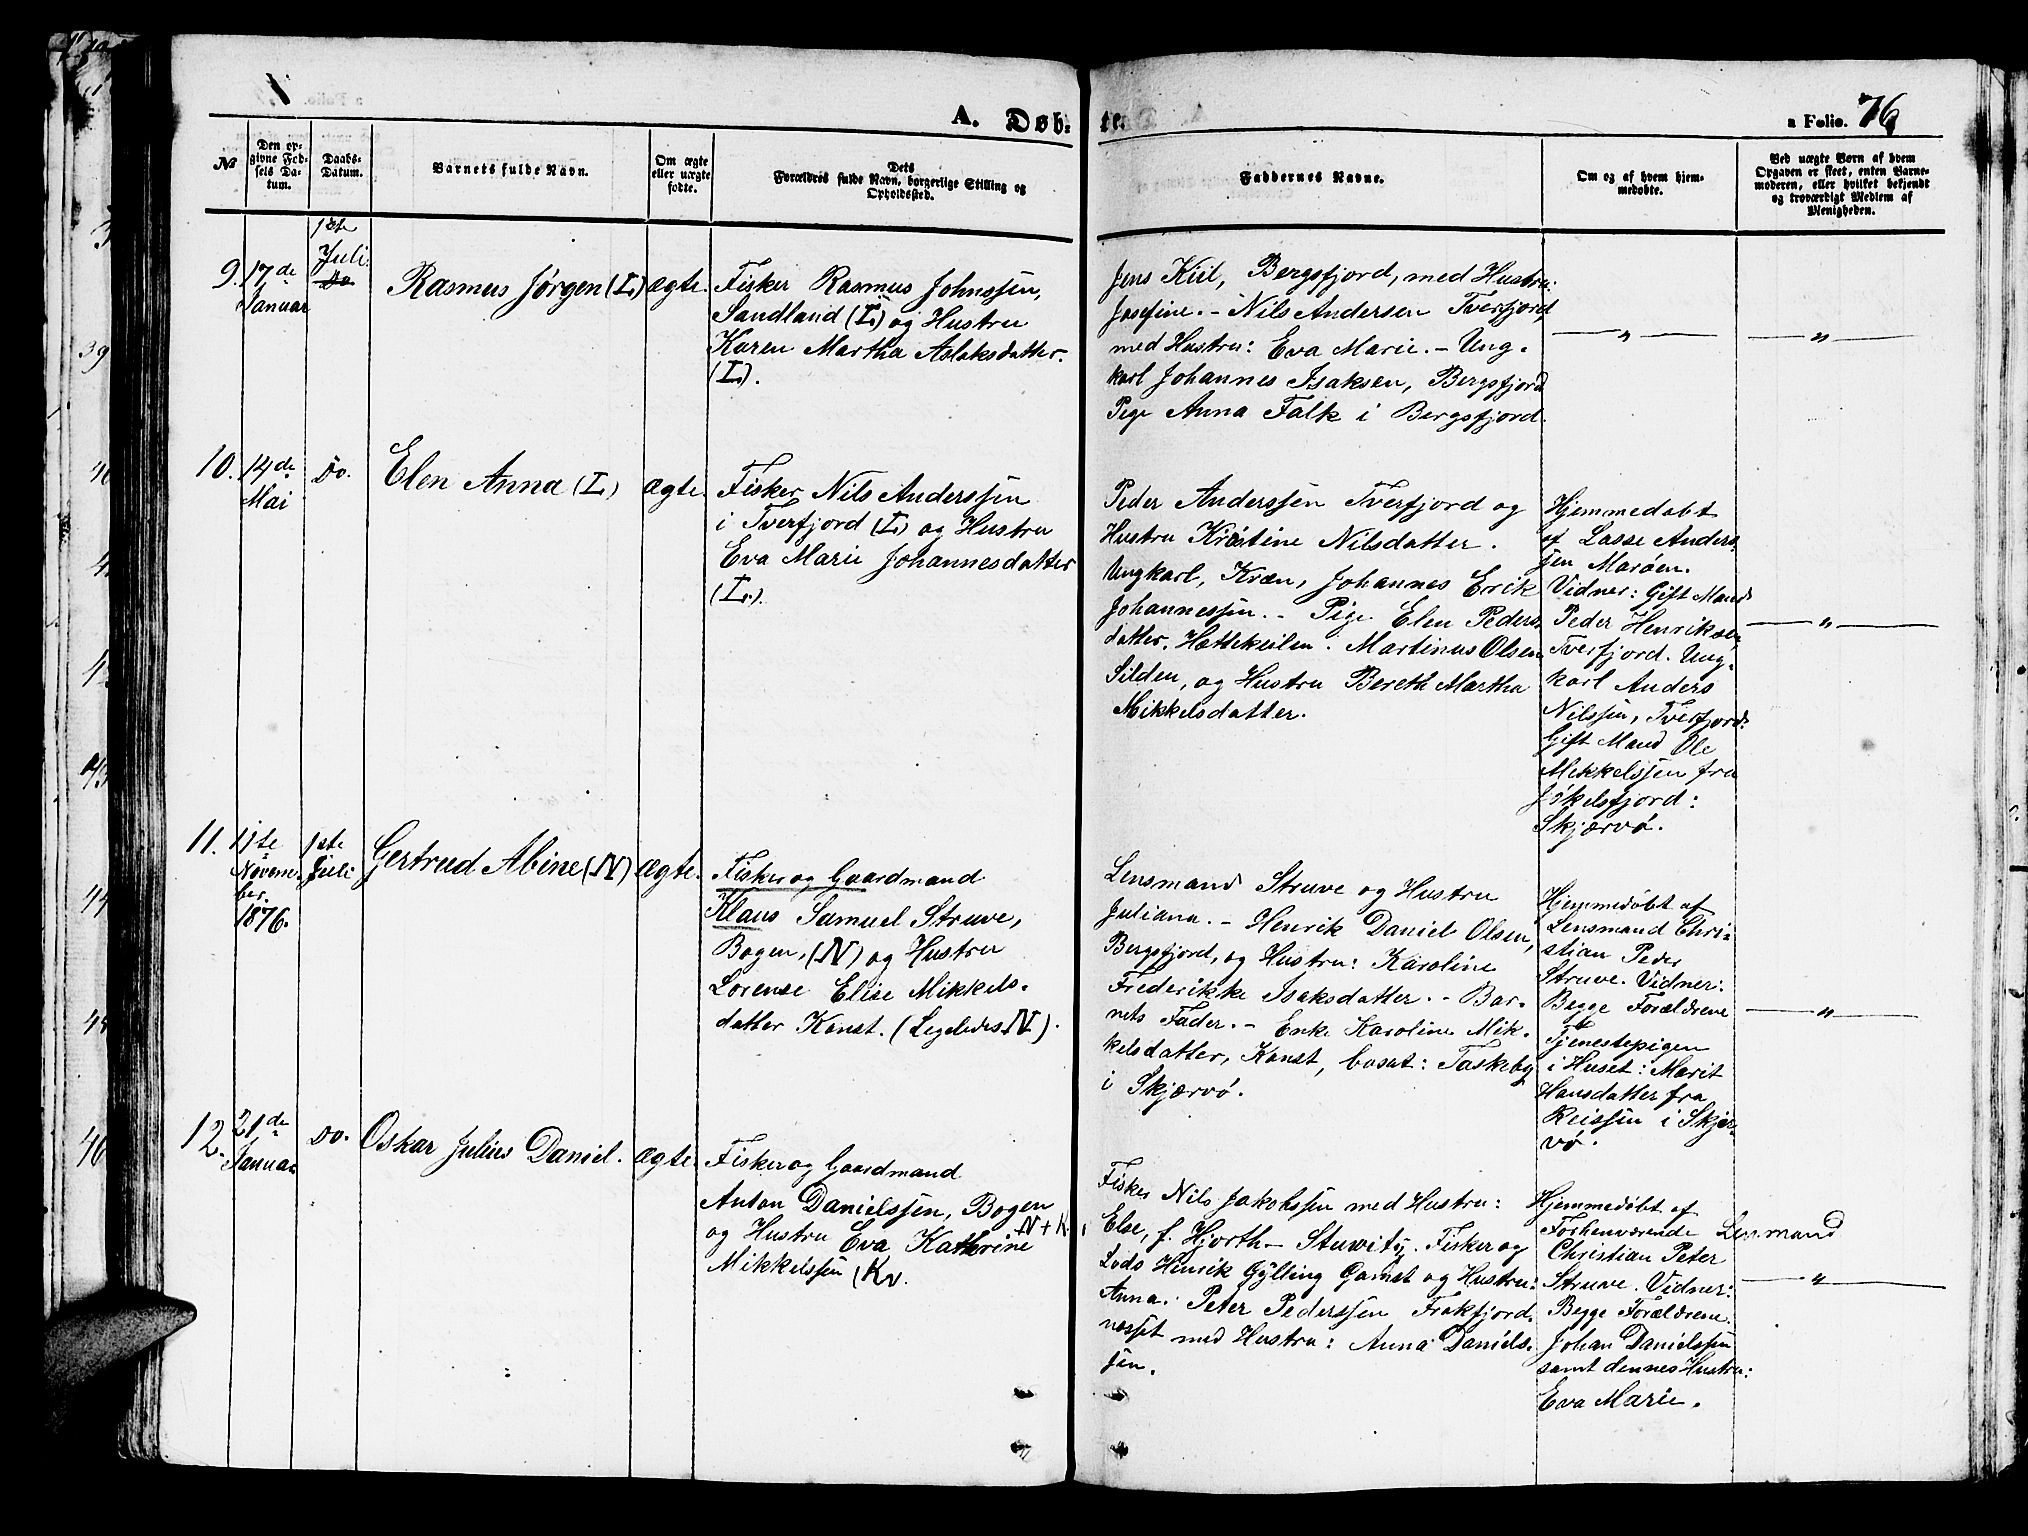 A. Døb-
te.
a Folio. 76
No
Den op-
givne Fød-
sels Da-
tum.
Daabs-
Datum.
Barnets fulde Navn.
Om ægte
eller uægte
fødte.
Dets
Forældres fulde Navn, borgerlige Stilling og
Opholdssted.
Faddernes Navne.
Om og af hvem hjem-
medøbte.
Ved uægte Børn af hvem
Opgaven er skeet, enten Barne-
moderen, eller hvilket bekjendt
og troværdigt Medlem af
Menigheden.
9.
17de
Januar
1ste
Juli
Do.
Rasmus Jørgen (L)
ægte.
Fisker Rasmus Johnssen,
Sandland (L) og Hustru
Karen Martha Aslaksdatter.
(L).
Jens Kiil, Bergsfjord, med Hustru:
Josefine. - Nils Andersen Tverfjord,
med Hustru: Eva Marie. - Ung-
karl Johannes Isaksen, Bergsfjord
Pige Anna Falk i Bergsfjord.
— " —
— " —
10.
14de
Mai
Do.
Elen Anna (L)
ægte.
Fisker Nils Anderssen
i Tverfjord (L) og Hustru
Eva Marie Johannesdatter
(L.).
Peder Anderssen Tverfjord og
Hustru Kristine Nilsdatter.
Ungkarl, Kræn, Johannes Erik
Johannessen. - Pige Elen Peders-
datter, Hættekeilen. Martinus Olsen
Silden, og Hustru Bereth Martha
Mikkelsdatter.
Hjemmedøbt
af Lasse Anders-
sen Marøen.
Vidner: Gift Mand
Peder Henriksen,
Tverfjord. Ung-
karl Anders
Nilssen, Tverfjord:
Gift Mand Ole
Mikkelssen fra
Jøkelsfjord:
Skjærvø.
— " —
11.
11te
Novem-
ber
1876.
1ste
Juli
Gertrud Abine (N)
ægte.
Fisker og Gaardmand
Klaus Samuel Struve,
Bogen, (N) og Hustru
Lorense Elise Mikkels-
datter Kanst. (Ligeledes N).
Lensmand Struve og Hustru
Juliana. - Henrik Daniel Olsen,
Bergsfjord, og Hustru: Karoline
Frederikke Isaksdatter. - Bar-
nets Fader. - Enke Karoline Mik-
kelsdatter, Kanst, bosat: Taskeby
i Skjærvø.
Hjemmedøbt af
Lensmand Chri-
stian Peder
Struve. Vidner:
Begge Forældrene
Tjenestepigen
i Huset: Marit
Hansdatter fra
Reissen i Skjær-
vø.
— " —
12.
21de
Januar
Do.
Oskar Julius Daniel.
ægte.
Fisker og Gaardmand
Anton Danielssen, Bogen
N + K
og Hustru Eva Kathrine
Mikkelssen (Kv.
Fisker Nils Jakobssen med Hustru:
Else, f. Hjorth - Stuwitz. Fisker og
Lods Henrik Gylling Qvanst og Hustru:
Anna. Peter Pederssen Frakfjord-
næsset med Hustru: Anna Daniels-
sen.
Hjemmedøbt af
Forhenværende Lensmand
Christian Peter
Struve. Vidner:
Begge Forældrene.
Johan Danielssen
samt dennes Hustru:
Eva Marie.
— " —